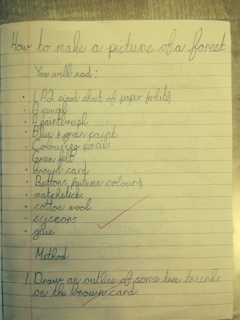 How to make a picture of a forest
You will need:
• 1 A2 sized sheet of paper (white)
• A pencil
• A paintbrush
• Blue + green paint
• Colouring pencils
• Green felt
• Brown card
• Buttons (autumn colours)
• matchsticks
• cotton wool
• scissors
• glue
Method
1. Draw an outline of some tree trunks
on the brown card.